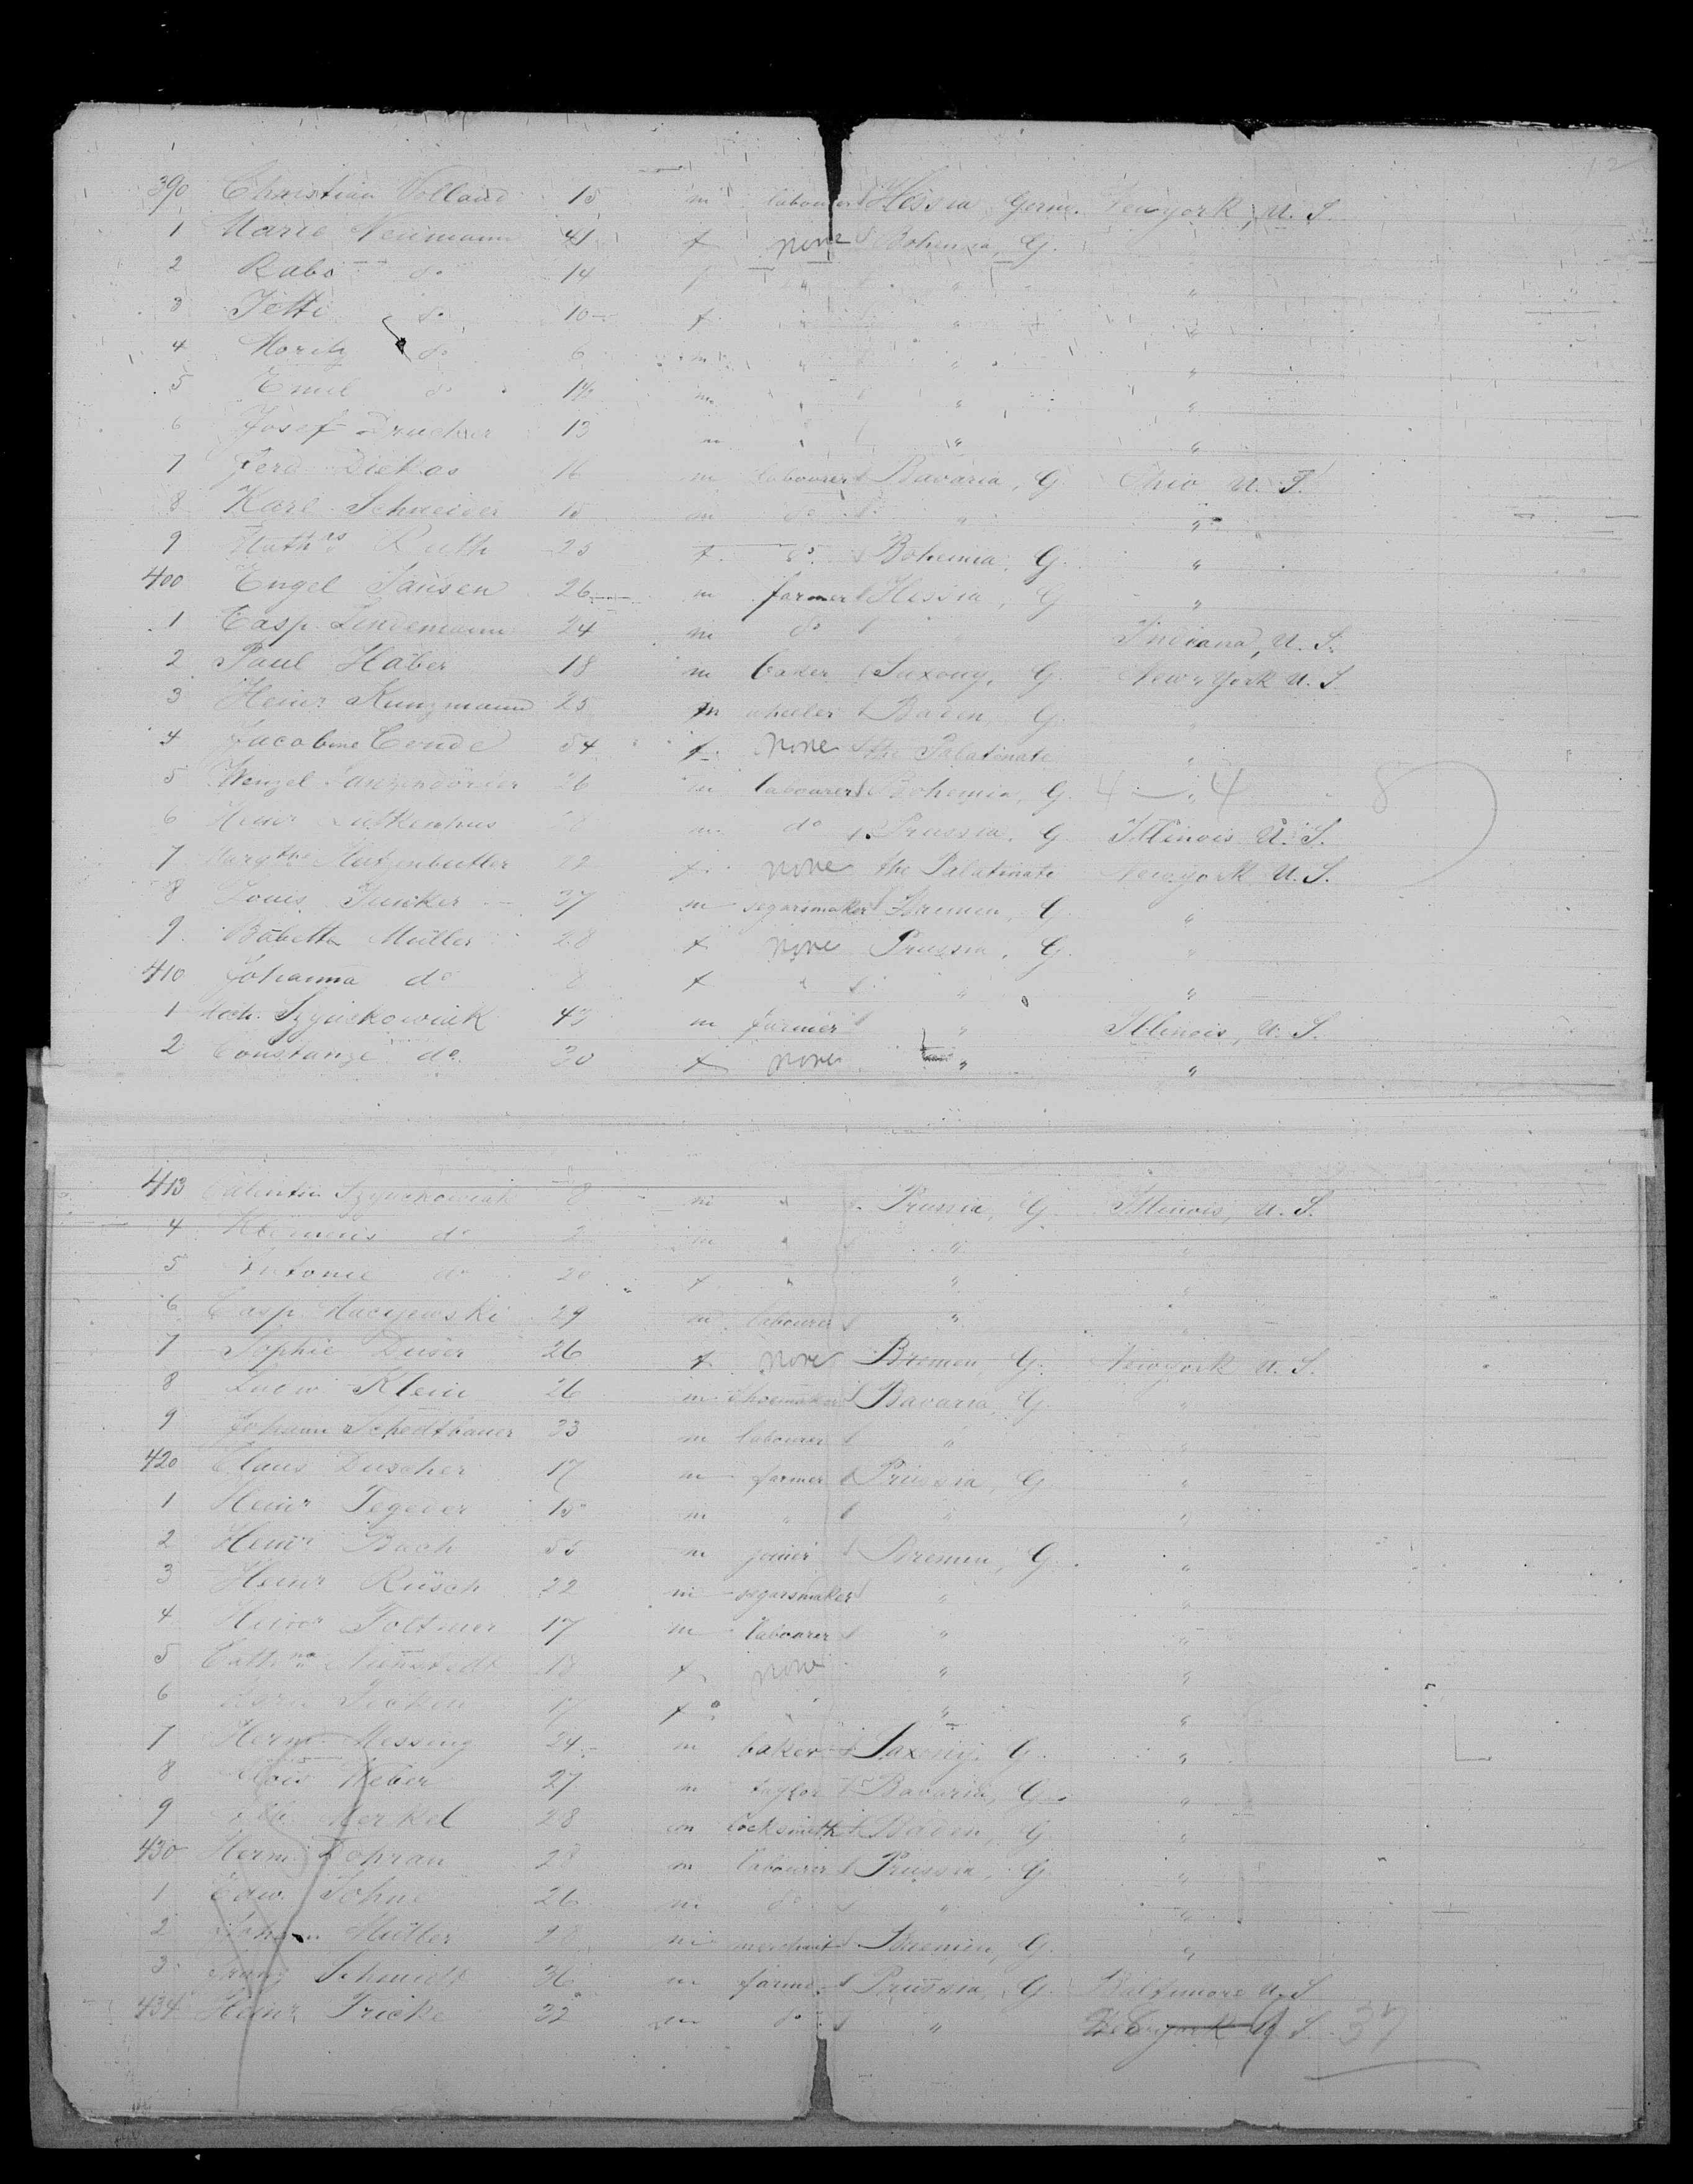 12
390 Christian Volland 15 m labourer Hessia, Germ. Newyork, U. S.
1 Marie Neumann 41 f none Bohemia, G.
2 Babs do 14 f " " "
3 Jetti do 10 f " " "
4 Moritz do 6 m " " "
5 Emil do m " " "
6 Josef 13 m " " "
7 Ferd. Diekas 16 m labourer Bavaria, G. Ohio U. S.
8 Karl Schneider 18 m do " "
9 Ruth 25 f do Bohemia, G. "
400 Engel Jansen 26 m farmer Hessia, G "
1 Casp. Lindemann 24 m do Indiana, U. S.
2 Paul Haber 18 m baker Saxony, G. New York U. S.
3 Heinr. Kunzmann 25 m wheeler Baden, G. "
4 Jacobine Conde 54 f. none the Palatinate "
5 Wenzel 26 m labourer Bohemia, G. 4 — 4 8
6 Heinr. m do Prussia, G Illinois U. S.
7 Margthe 22 f. none the Palatinate Newyork U. S.
8 Louis Junker 37 m segarsmaker Bremen, G "
9 Babetta Müller 28 f none Prussia, G. "
410 Johanna do 8 f " " "
1 Mich. Szynckowiak 43 m farmer " Illinois, U. S.
2 Constanze do 30 f none " "
413 Valentin Szynckowiak 8 m " Prussia, G. Illinois, U. S.
4 do 2 m " " "
5 Antonie do 20 f " " "
6 Casp. Maciejewski 29 m labourer " "
7 Sophie Duser 26 f none Bremen, G. Newyork U. S.
8 Ludw. Klein 26 m shoemaker Bavaria, G. "
9 Johann Schedlbauer 33 m labourer " "
420 Claus Duscher 17 m farmer Prussia, G. "
1 Heinr Tegeder 15 m " " "
2 Heinr Bach 55 m joiner Bremen, G. "
3 Heinr Rüsch 22 m segarsmaker " "
4 Heinr Foltmer 17 m labourer " "
5 Cathna Nienstedt 18 f none " "
6 17 f " " "
7 Herm. Messing 24 m baker Saxony, G. "
8 Alois Weber 27 m taylor Bavaria, G. "
9 Merkel 28 m locksmith Baden, G "
430 Herm. Dohran 28 m labourer Prussia, G "
1 Edw. Sohne 26 m do " "
2 Johann Müller 28 m merchant Bremen, G. "
3 Franz Schmidt 36 m farmer Prussia, G. Baltimore U. S
434 Heinr Fricke 32 m do " Newyork U. S. 37